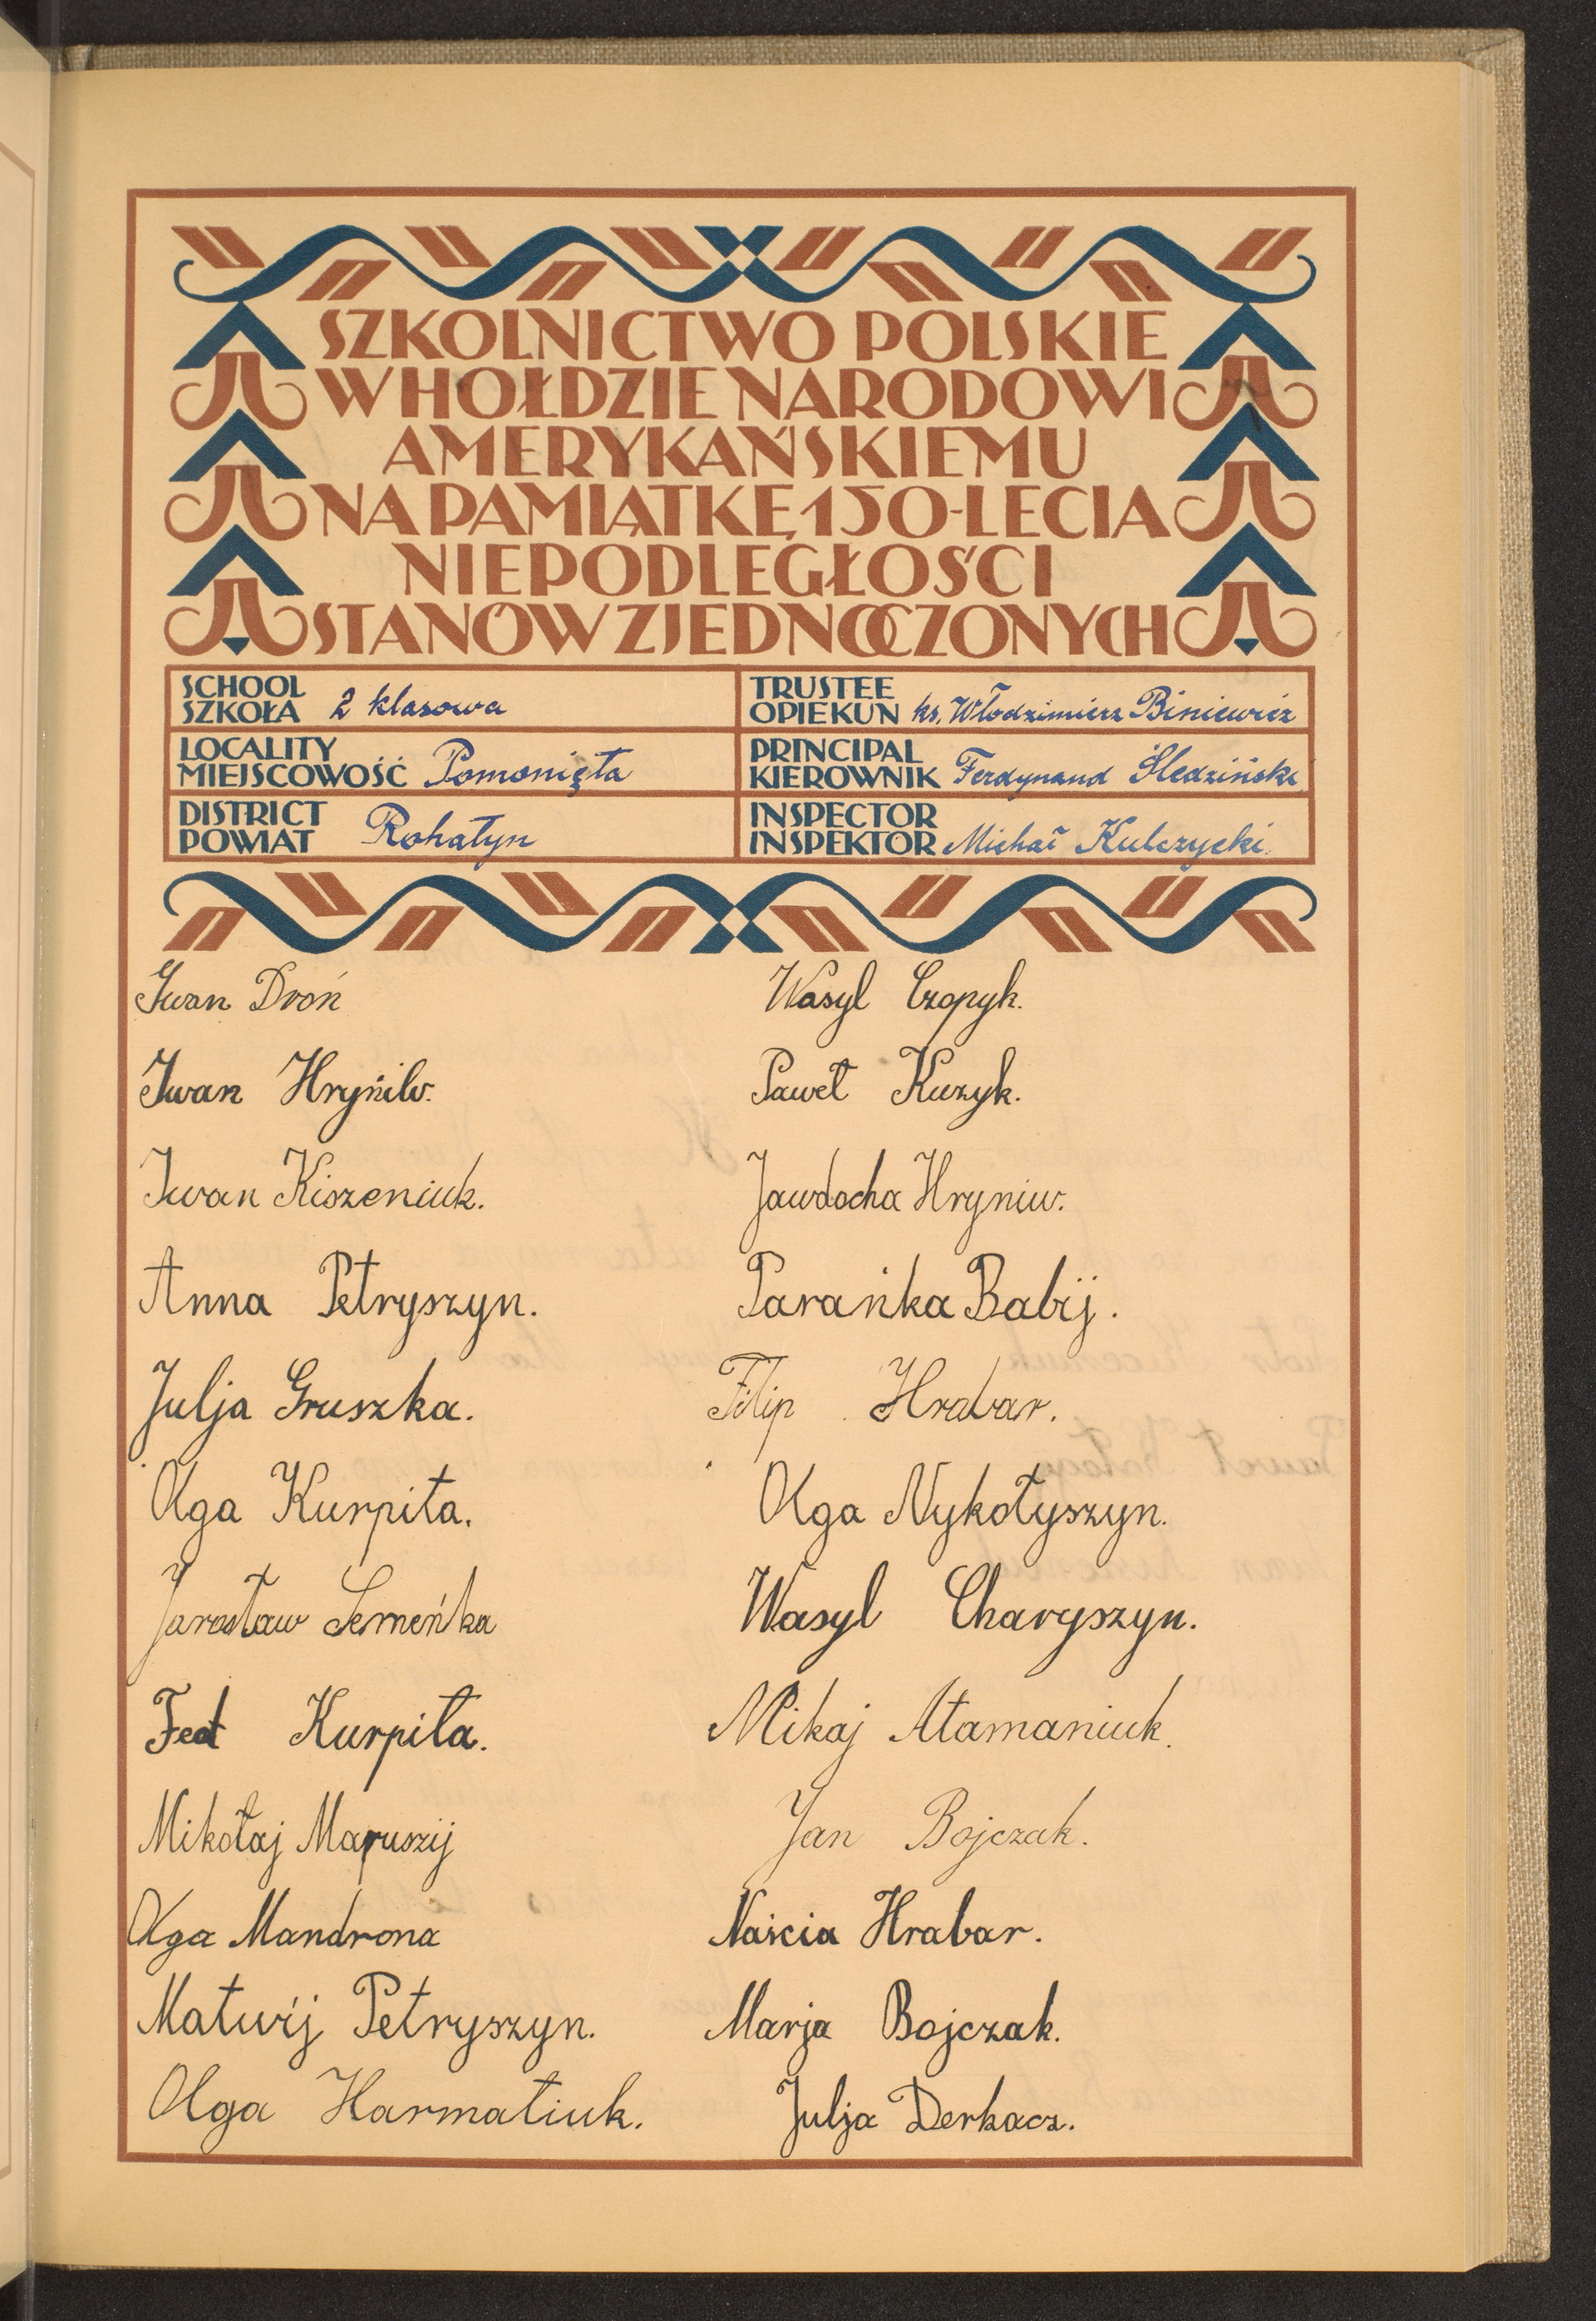 SZKOLNICTWO POLSKIE
W HOŁDZIE NARODOWI
AMERYKAŃSKIEMU
NA PAMIĄTKĘ 150-LECIA
NIEPODLEGŁOŚCI
STANÓW ZJEDNOCZONYCH
SCHOOL
SZKOŁA 2 klasowa
TRUSTEE
OPIEKUN ks. Włodzimierz Biniewicz
LOCALITY
MIEJSCOWOŚĆ Pomonięta
PRINCIPAL
KIEROWNIK Ferdynand Śledziński
DISTRICT
POWIAT Rohatyn
INSPECTOR
INSPEKTOR Michał Kulczycki.
Iwan Droń
Iwan Hryńiw.
Iwan Kiszeniuk.
Anna Petryszyn.
Julja Gruszka.
Olga Kurpita.
Jarosław Semeńka
Fed Kurpita.
Mikołaj Mapuszij
Olga Mandrona
Matwij Petryszyn.
Olga Harmatiuk.
Wasyl Czopyk.
Paweł Kuzyk.
Jawdocha Hryniw.
Parańka Babij.
Filip Hrabar.
Olga Nykołyszyn.
Wasyl Charyszyn.
Mikaj Atamaniuk.
Jan Bojczak.
Naścia Hrabar.
Marja Bojczak.
Julja Derkacz.